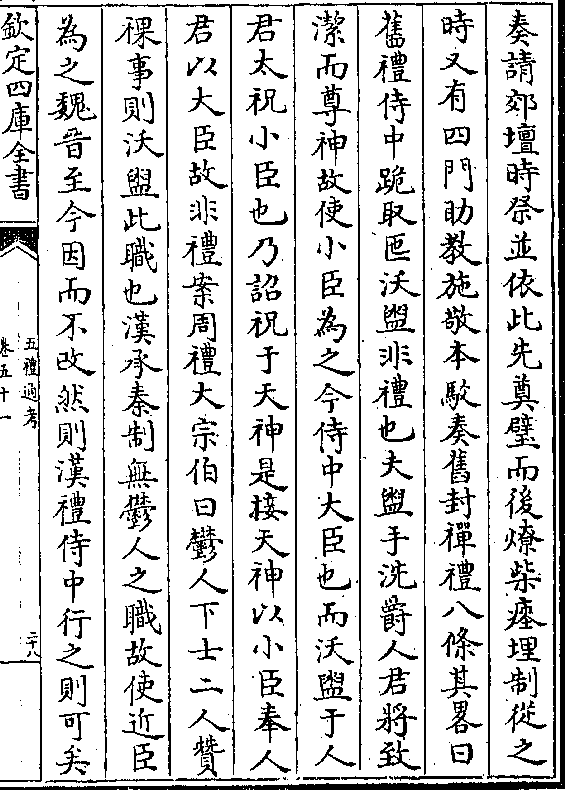 奏請郊壇時祭並依此先奠璧而後燎柴瘞埋制從之
時又有四門助教施敬本駮奏舊封禪禮八條其畧曰
舊禮侍中跪取匜沃盥非禮也夫盥手洗爵人君將致
潔而尊神故使小臣為之今侍中大臣也而沃盥于人
君太祝小臣也乃詔祝于天神是接天神以小臣奉人
君以大臣故非禮案周禮大宗伯曰鬱人下士二人贊
祼事則沃盥此職也漢承秦制無鬱人之職故使近臣
為之魏晉至今因而不改然則漢禮侍中行之則可矣
欽定四庫全書
五禮通考
卷五十一
二十八